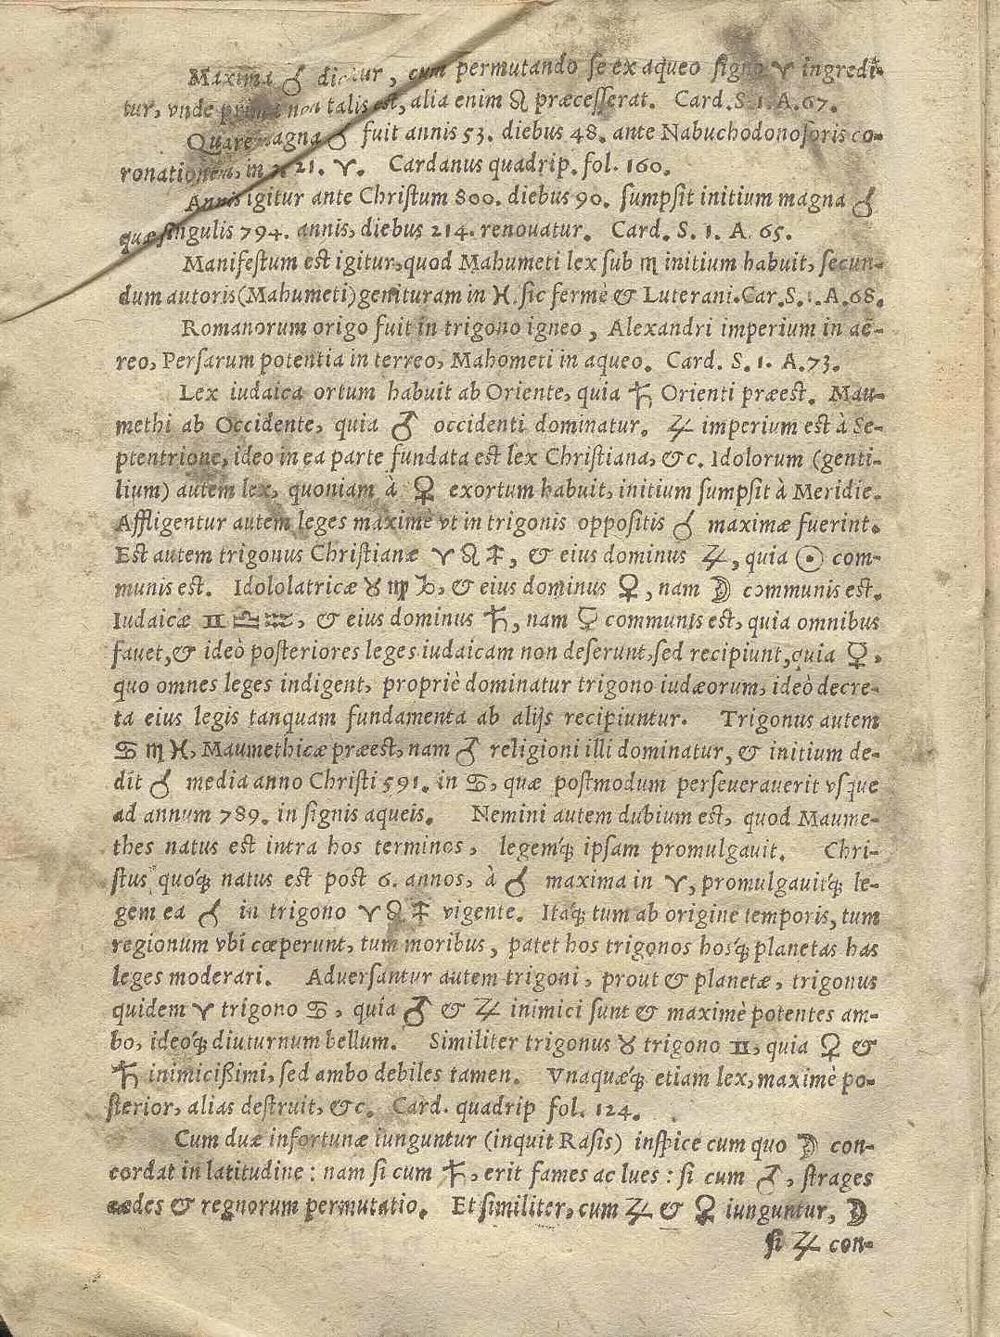 Maxima ☌ dicitur, cum permutando ſe ex aqueo ſigno ♈ ingredi-
tur, vnde prima non talis eſt, alia enim ♌ præceſſerat. Card. S. 1. A. 67.
Quare magna ☌ fuit annis 53. diebus 48. ante Nabuchodonoſoris co-
ronationem, in 21. ♈. Cardanus quadrip. fol. 160.
Annis igitur ante Chriſtum 800. diebus 90. ſumpſit initium magna ☌
quæ ſingulis 794. annis, diebus 214. renouatur. Card. S. 1. A. 65.
Manifeſtum eſt igitur, quod Mahumeti lex ſub ♏ initium habuit, ſecun-
dum autoris (Mahumeti) genituram in ♓. ſic fermè & Luterani. Car. S. 1. A. 68.
Romanorum origo fuit in trigono igneo, Alexandri imperium in aë-
reo, Perſarum potentia in terreo, Mahometi in aqueo. Card. S. 1. A. 73.
Lex iudaica ortum habuit ab Oriente, quia ♄ Orienti præeſt. Mau-
methi ab Occidente, quia ♂ occidenti dominatur. ♃ imperium eſt à Se-
ptentrione, ideo in ea parte fundata eſt lex Chriſtiana, &c. Idolorum (genti-
lium) autem lex, quoniam à ♀ exortum habuit, initium ſumpſit à Meridie.
Affligentur autem leges maximè vt in trigonis oppoſitis ☌ maximæ fuerint.
Eſt autem trigonus Chriſtianæ ♈ ♌ ♐, & eius dominus ♃, quia ☉ com-
munis eſt. Idololatricæ ♉ ♍ ♑, & eius dominus ♀, nam ☽ communis eſt.
Iudaicæ ♊ ♎ ♒, & eius dominus ♄, nam ☿ communis eſt, quia omnibus
fauet, & ideò poſteriores leges iudaicam non deſerunt, ſed recipiunt, quia ☿,
quo omnes leges indigent, propriè dominatur trigono iudæorum, ideò decre-
ta eius legis tanquam fundamenta ab alijs recipiuntur. Trigonus autem
♋ ♏ ♓, Maumethicæ præeſt, nam ♂ religioni illi dominatur, & initium de-
dit ☌ media anno Chriſti 591. in ♋, quæ poſtmodum perſeuerauerit vſque
ad annum 789. in ſignis aqueis. Nemini autem dubium eſt, quod Maume-
thes natus eſt intra hos terminos, legemq́ꝫ ipſam promulgauit. Chri-
ſtus quoq́ꝫ natus eſt poſt 6. annos, à ☌ maxima in ♈, promulgauitq́ꝫ le-
gem ea ☌ in trigono ♈ ♌ ♐ vigente. Itaq́ꝫ tum ab origine temporis, tum
regionum vbi cœperunt, tum moribus, patet hos trigonos hosq́ꝫ planetas has
leges moderari. Aduerſantur autem trigoni, prout & planetæ, trigonus
quidem ♈ trigono ♋, quia ♂ & ♃ inimici ſunt & maximè potentes am-
bo, ideoq́ꝫ diuturnum bellum. Similiter trigonus ♉ trigono ♊, quia ♀ &
♄ inimicißimi, ſed ambo debiles tamen. Vnaquæq́ꝫ etiam lex, maximè po-
ſterior, alias deſtruit, &c. Card. quadrip fol. 124.
Cum duæ infortunæ iunguntur (inquit Raſis) inſpice cum quo ☽ con-
cordat in latitudine: nam ſi cum ♄, erit fames ac lues: ſi cum ♂, ſtrages
ædes & regnorum permutatio. Et ſimiliter, cum ♃ & ♀ iunguntur, ☽
ſi ♃ con-